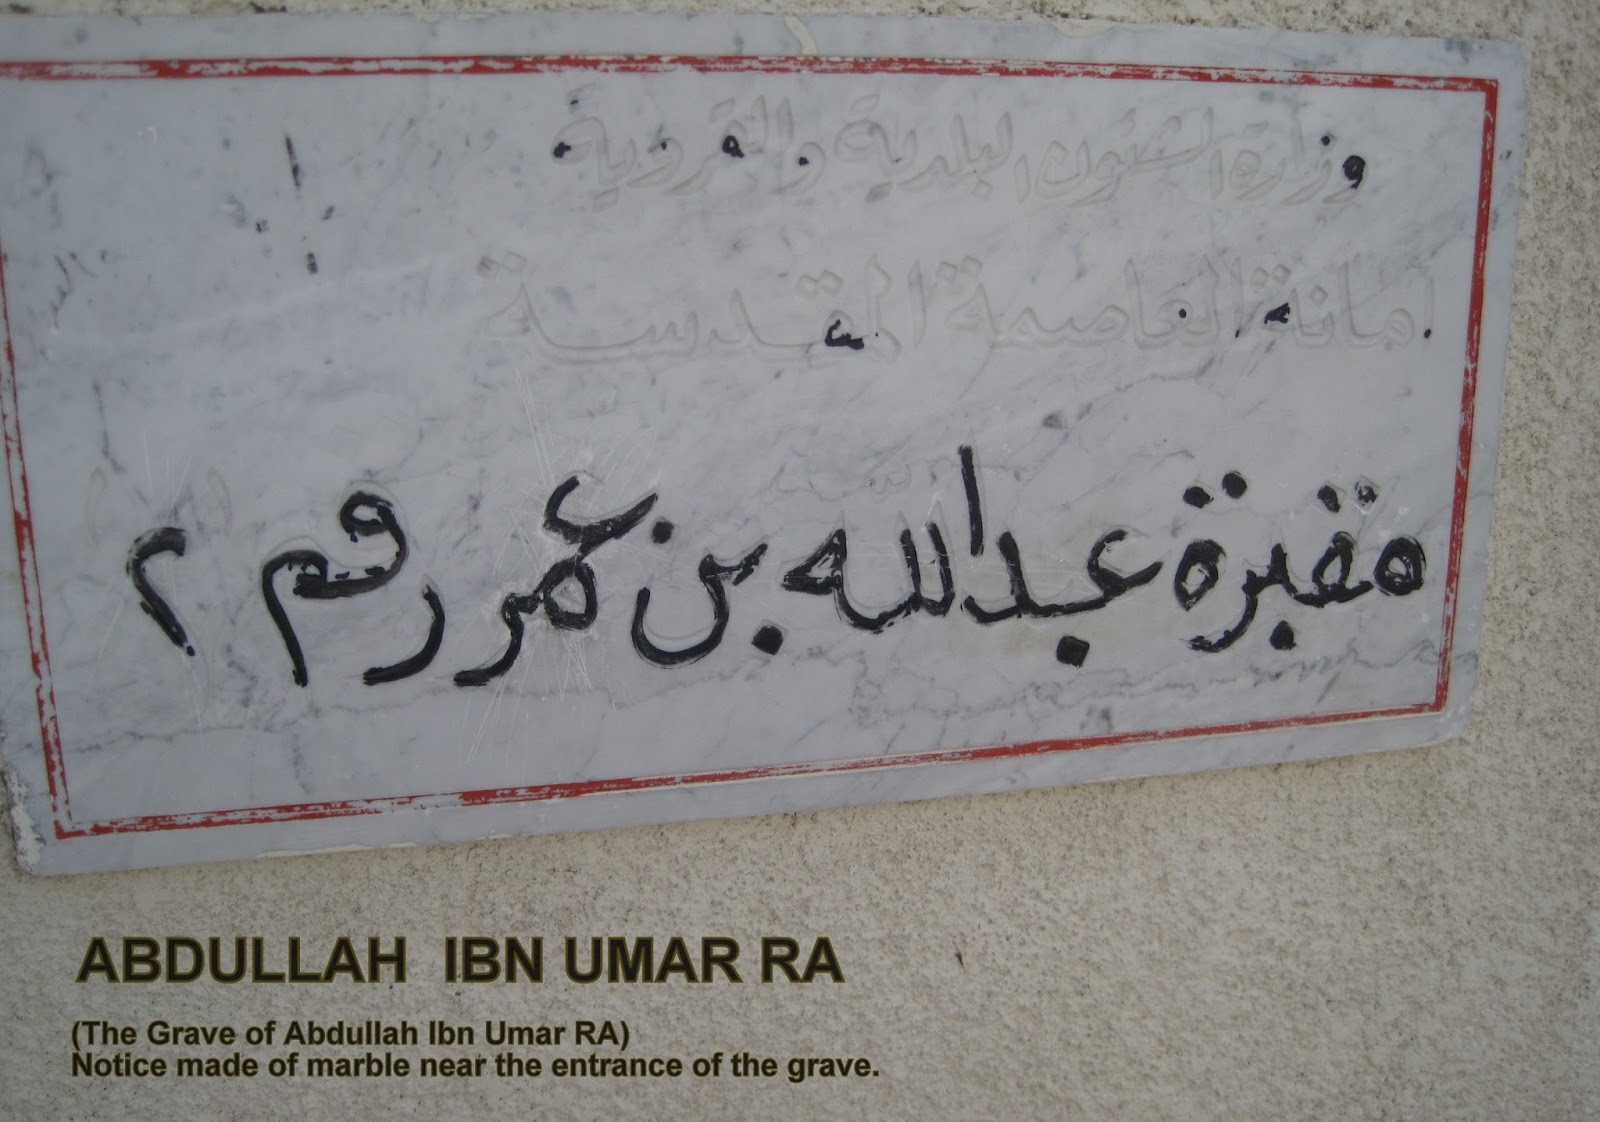 وزارة الشئون البلدية والقروية
امانة العاصمة المقدسة
مقبرة عبدالله بن عمر رقم ٢
ABDULLAH IBN UMAR RA
(The Grave of Abdullah Ibn Umar RA)
Notice made of marble near the entrance of the grave.